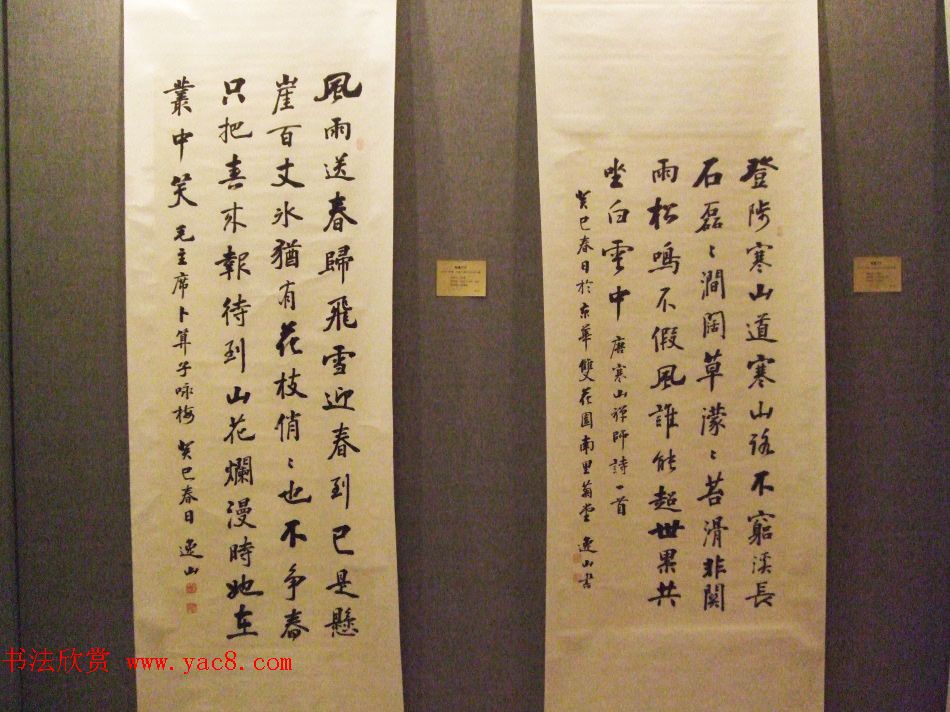 登陟寒山道寒山路不窮溪長
石磊〻澗闊草濛〻苔滑非關
雨松鳴不假風誰能超世累共
坐白雲中 唐寒山禪師詩一首
癸巳春日於京華雙花園南里菊堂 逸山書
風雨送春歸飛雪迎春到已是懸
崖百丈冰猶有花枝俏〻也不争春
只把春來報待到山花爛漫時她在
叢中笑 毛主席卜算子咏梅 癸巳春日 逸山
书法欣赏 www.yac8.com